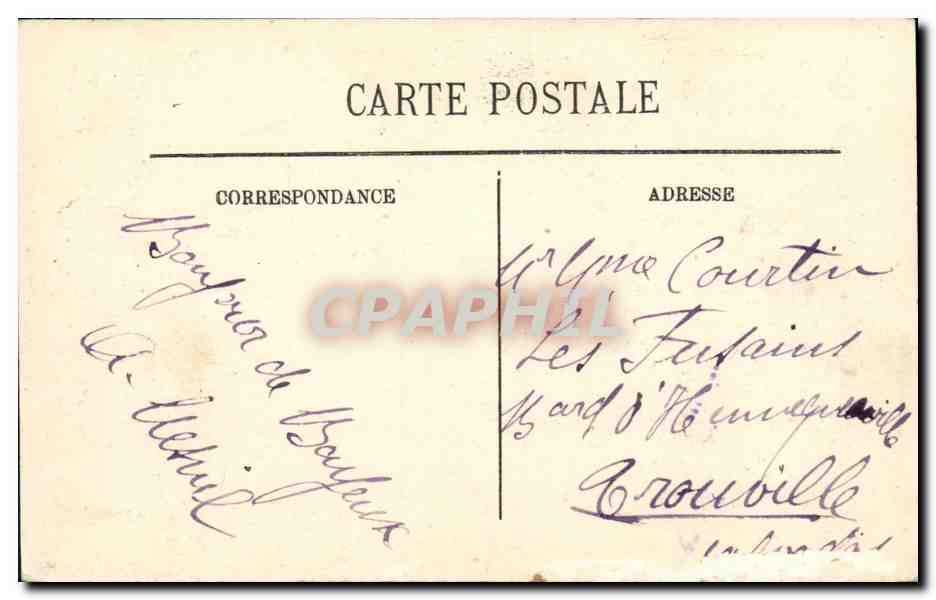 CARTE POSTALE
CORRESPONDANCE
Bonjour de Bayeux
A.
ADRESSE
Mr Mme Courtin
Les Fusains
Bard d'Hennequeville
Trouville
CPAPHIL